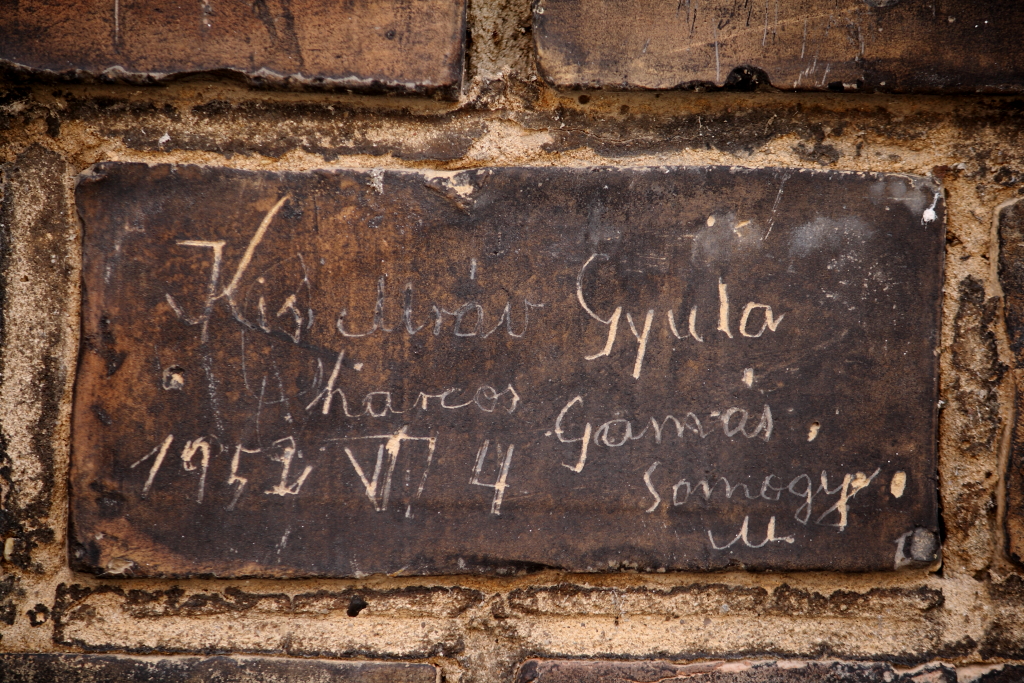 Kis Mráv Gyula
harcos Gamás,
1952 VII 4 Somogy
M